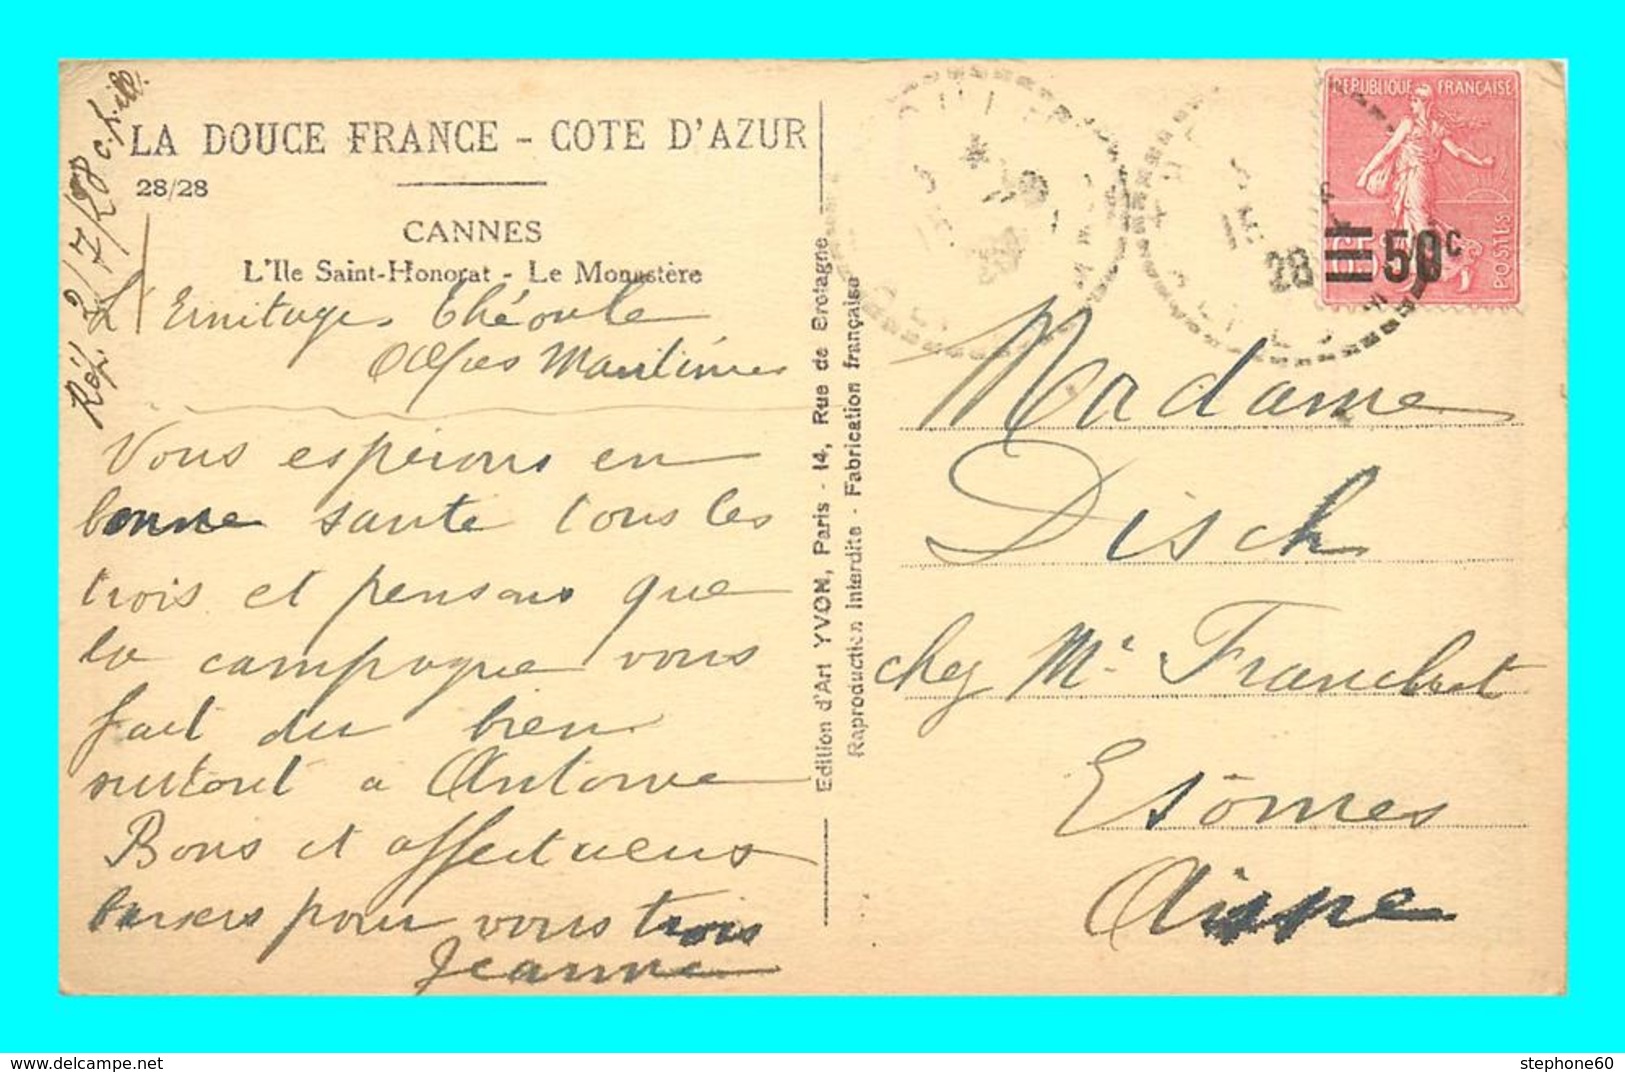 LA DOUCE FRANCE - COTE D'AZUR
28/28
CANNES
L'Ile Saint-Honorat - Le Monastère
Rép. 2/7/28 c. h. ill.
L'Ermitage Théoule
Alpes Maritimes
Vous espérons en
bonne santé tous les
trois et pensons que
la campagne vous
fait du bien
surtout a Antoine
Bons et affectueux
baisers pour vous trois
Jeanne
Edition d'Art YVON, Paris - 14, Rue de Bretagne
Reproduction Interdite - Fabrication française
REPUBLIQUE FRANÇAISE
POSTES
50c
28
Madame
Disch
chez Mr Franchet
Esômes
Aisne
stephone60